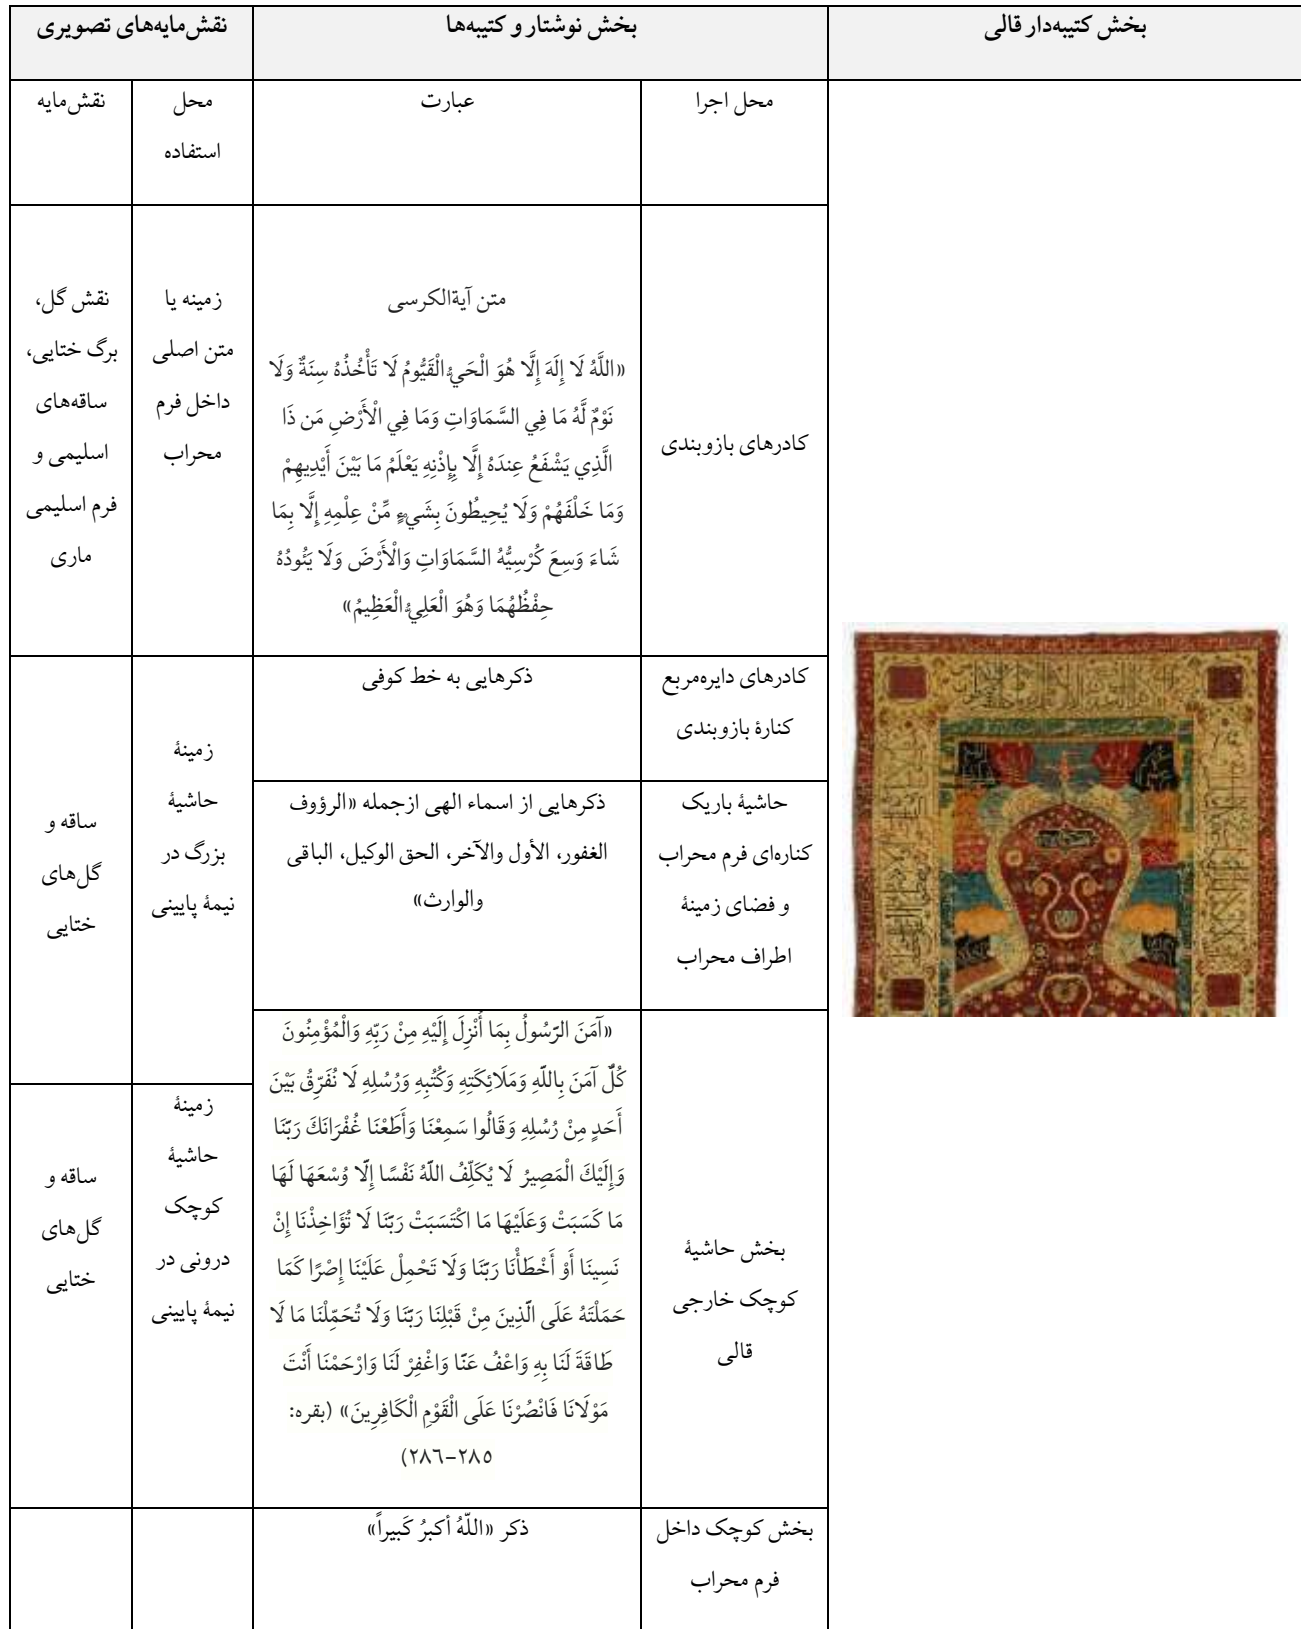 بخش کتیبه‌دار قالی
بخش نوشتار و کتیبه‌ها
نقش‌مایه‌های تصویری
محل اجرا
عبارت
محل
استفاده
نقش‌مایه
کادرهای بازوبندی
متن آیةالکرسی
«اللَّهُ لَا إِلَهَ إِلَّا هُوَ الْحَيُّ الْقَيُّومُ لَا تَأْخُذُهُ سِنَةٌ وَلَا
نَوْمٌ لَّهُ مَا فِي السَّمَاوَاتِ وَمَا فِي الْأَرْضِ مَن ذَا
الَّذِي يَشْفَعُ عِندَهُ إِلَّا بِإِذْنِهِ يَعْلَمُ مَا بَيْنَ أَيْدِيهِمْ
وَمَا خَلْفَهُمْ وَلَا يُحِيطُونَ بِشَيءٍ مِّنْ عِلْمِهِ إِلَّا بِمَا
شَاءَ وَسِعَ كُرْسِيُّهُ السَّمَاوَاتِ وَالْأَرْضَ وَلَا يَئُودُهُ
حِفْظُهُمَا وَهُوَ الْعَلِيُّ الْعَظِيمُ»
زمینه یا
متن اصلی
داخل فرم
محراب
نقش گل،
برگ ختایی،
ساقه‌های
اسلیمی و
فرم اسلیمی
ماری
کادرهای دایره‌مربع
کنارۀ بازوبندی
ذکرهایی به خط کوفی
زمینۀ
حاشیۀ
بزرگ در
نیمۀ پایینی
ساقه و
گل‌های
ختایی
حاشیۀ باریک
کناره‌ای فرم محراب
و فضای زمینۀ
اطراف محراب
ذکرهایی از اسماء الهی ازجمله «الرؤوف
الغفور، الأول والآخر، الحق الوکیل، الباقی
والوارث»
بخش حاشیۀ
کوچک خارجی
قالی
«آمَنَ الرَّسُولُ بِمَا أُنْزِلَ إِلَيْهِ مِنْ رَبِّهِ وَالْمُؤْمِنُونَ
كُلٌّ آمَنَ بِاللَّهِ وَمَلَائِكَتِهِ وَكُتُبِهِ وَرُسُلِهِ لَا نُفَرِّقُ بَيْنَ
أَحَدٍ مِنْ رُسُلِهِ وَقَالُوا سَمِعْنَا وَأَطَعْنَا غُفْرَانَكَ رَبَّنَا
وَإِلَيْكَ الْمَصِيرُ لَا يُكَلِّفُ اللَّهُ نَفْسًا إِلَّا وُسْعَهَا لَهَا
مَا كَسَبَتْ وَعَلَيْهَا مَا اكْتَسَبَتْ رَبَّنَا لَا تُؤَاخِذْنَا إِنْ
نَسِينَا أَوْ أَخْطَأْنَا رَبَّنَا وَلَا تَحْمِلْ عَلَيْنَا إِصْرًا كَمَا
حَمَلْتَهُ عَلَى الَّذِينَ مِنْ قَبْلِنَا رَبَّنَا وَلَا تُحَمِّلْنَا مَا لَا
طَاقَةَ لَنَا بِهِ وَاعْفُ عَنَّا وَاغْفِرْ لَنَا وَارْحَمْنَا أَنْتَ
مَوْلَانَا فَانْصُرْنَا عَلَى الْقَوْمِ الْكَافِرِينَ» (بقره:
٢٨٥-٢٨٦)
زمینۀ
حاشیۀ
کوچک
درونی در
نیمۀ پایینی
ساقه و
گل‌های
ختایی
بخش کوچک داخل
فرم محراب
ذکر «اللّهُ أکبرُ کَبیراً»